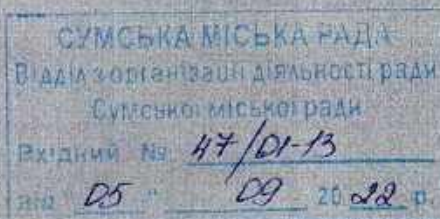 СУМСЬКА МІСЬКА РАДА
Відділ з організації діяльності ради
Сумської міської ради
Вхідний № 47/01-13
від "05" 09 2022 р.